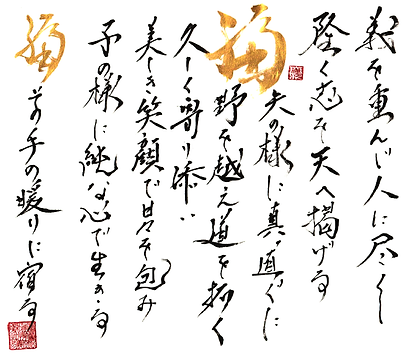 義を重んじ人に尽くし
隆く志を天へ掲げる
福
矢の様に真っ直ぐに
野を越え道を拓く
久しく寄り添い
美しき笑顔で日々を包み
子の様に純な心で生きる
福
その手の暖りに宿る